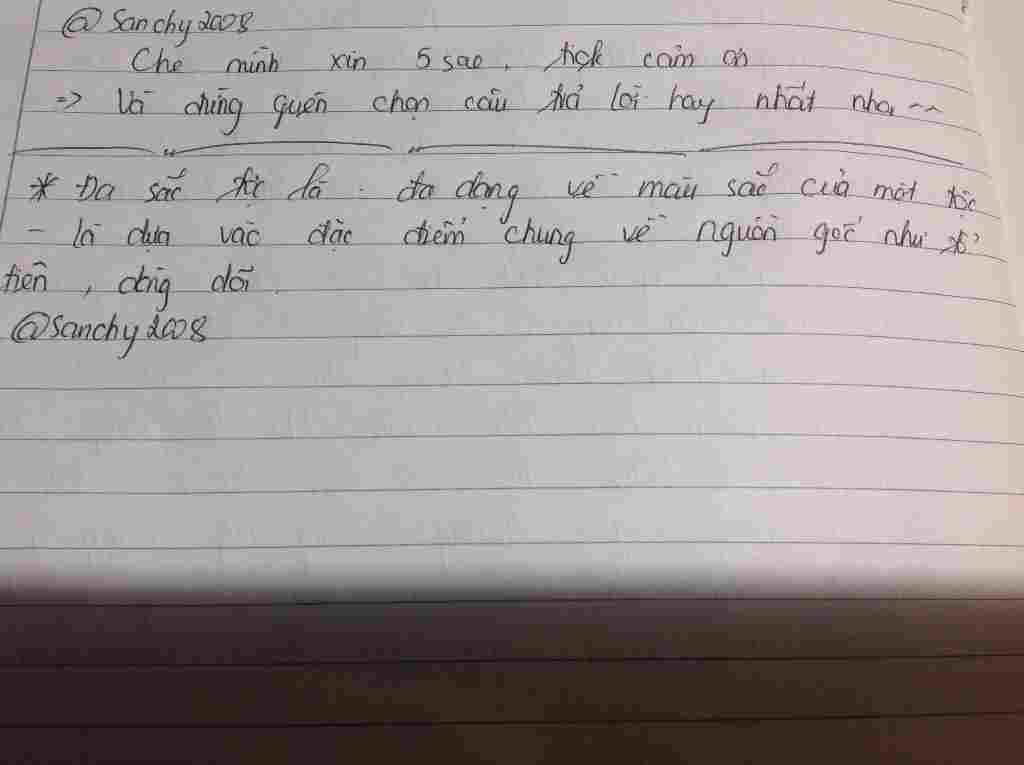 @Sanchy2008
Cho mình xin 5 sao, tick cảm ơn
=> Và đừng quên chọn câu trả lời hay nhất nha ~~
* Đa sắc tộc là : đa dạng về màu sắc của một tộc
- là dựa vào đặc điểm chung về nguồn gốc như tổ
tiên, dòng dõi.
@Sanchy2008